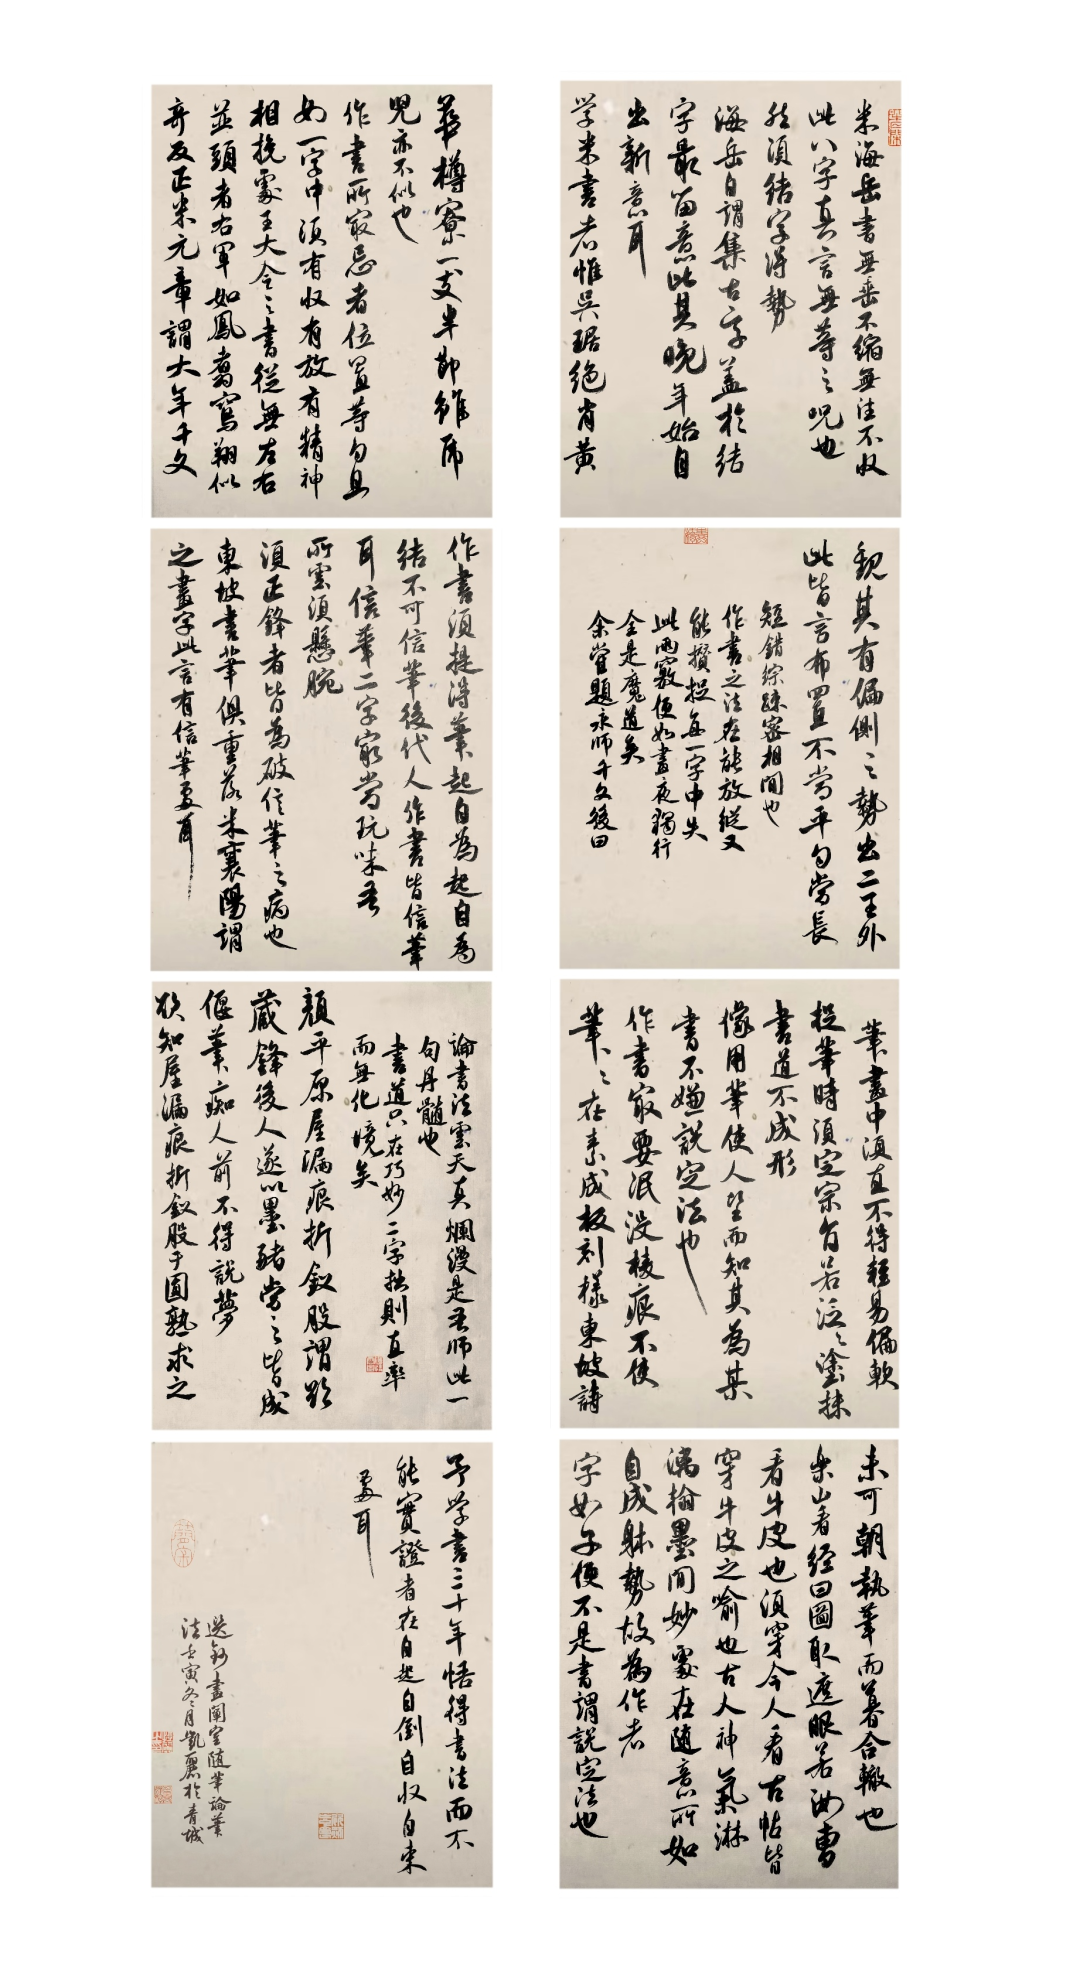 米海岳書無垂不縮無往不収
此八字真言無等之咒也
然須結字得勢
海岳自謂集古字蓋於結
字最留意此其晚年始自
出新意耳
学米書者惟吳琚絕肖黄
華樽寮一支半節雖虎
兒亦不似也
作書所最忌者位置等勻且
如一字中須有収有放有精神
相挽處王大令之書從無左右
並頭者右軍如鳳翥鸞翔似
奇反正米元章謂大年千文
觀其有偏側之勢出二王外
此皆言布置不當平勻當長
短錯綜疎密相間也
作書之法在能放縱又
能攢捉每一字中失
此兩竅便如晝夜獨行
全是魔道矣
余嘗題永師千文後曰
作書須提得筆起自為起自為
結不可信筆後代人作書皆信筆
耳信筆二字最當玩味吾
所雲須懸腕
須正鋒者皆為破信筆之病也
東坡書筆俱重落米襄陽謂
之畫字此言有信筆處耳
筆畫中須直不得輕易偏軟
捉筆時須定宗旨若泛泛塗抹
書道不成形
像用筆使人望而知其為某
書不嫌說定法也
作書最要泯沒稜痕不使
筆筆在素成板刻樣東坡詩
論書法雲天真爛漫是吾師此一
句丹髓也
書道只在巧妙二字拙則直率
而無化境矣
顏平原屋漏痕折釵股謂欲
藏鋒後人遂以墨豬當之皆成
偃筆痴人前不得說夢
欲知屋漏痕折釵股于圓熟求之
未可朝執筆而暮合轍也
樂山看經曰圖取遮眼若汝曹
看牛皮也須穿今人看古帖皆
穿牛皮之喻也古人神氣淋
漓翰墨間妙處在隨意所如
自成躰勢故為作者
字如子便不是書謂說定法也
予学書三十年悟得書法而不
能實證者在自起自倒自収自束
處耳
選錄畫闌室随筆論筆
法壬寅冬月凱麗於青城